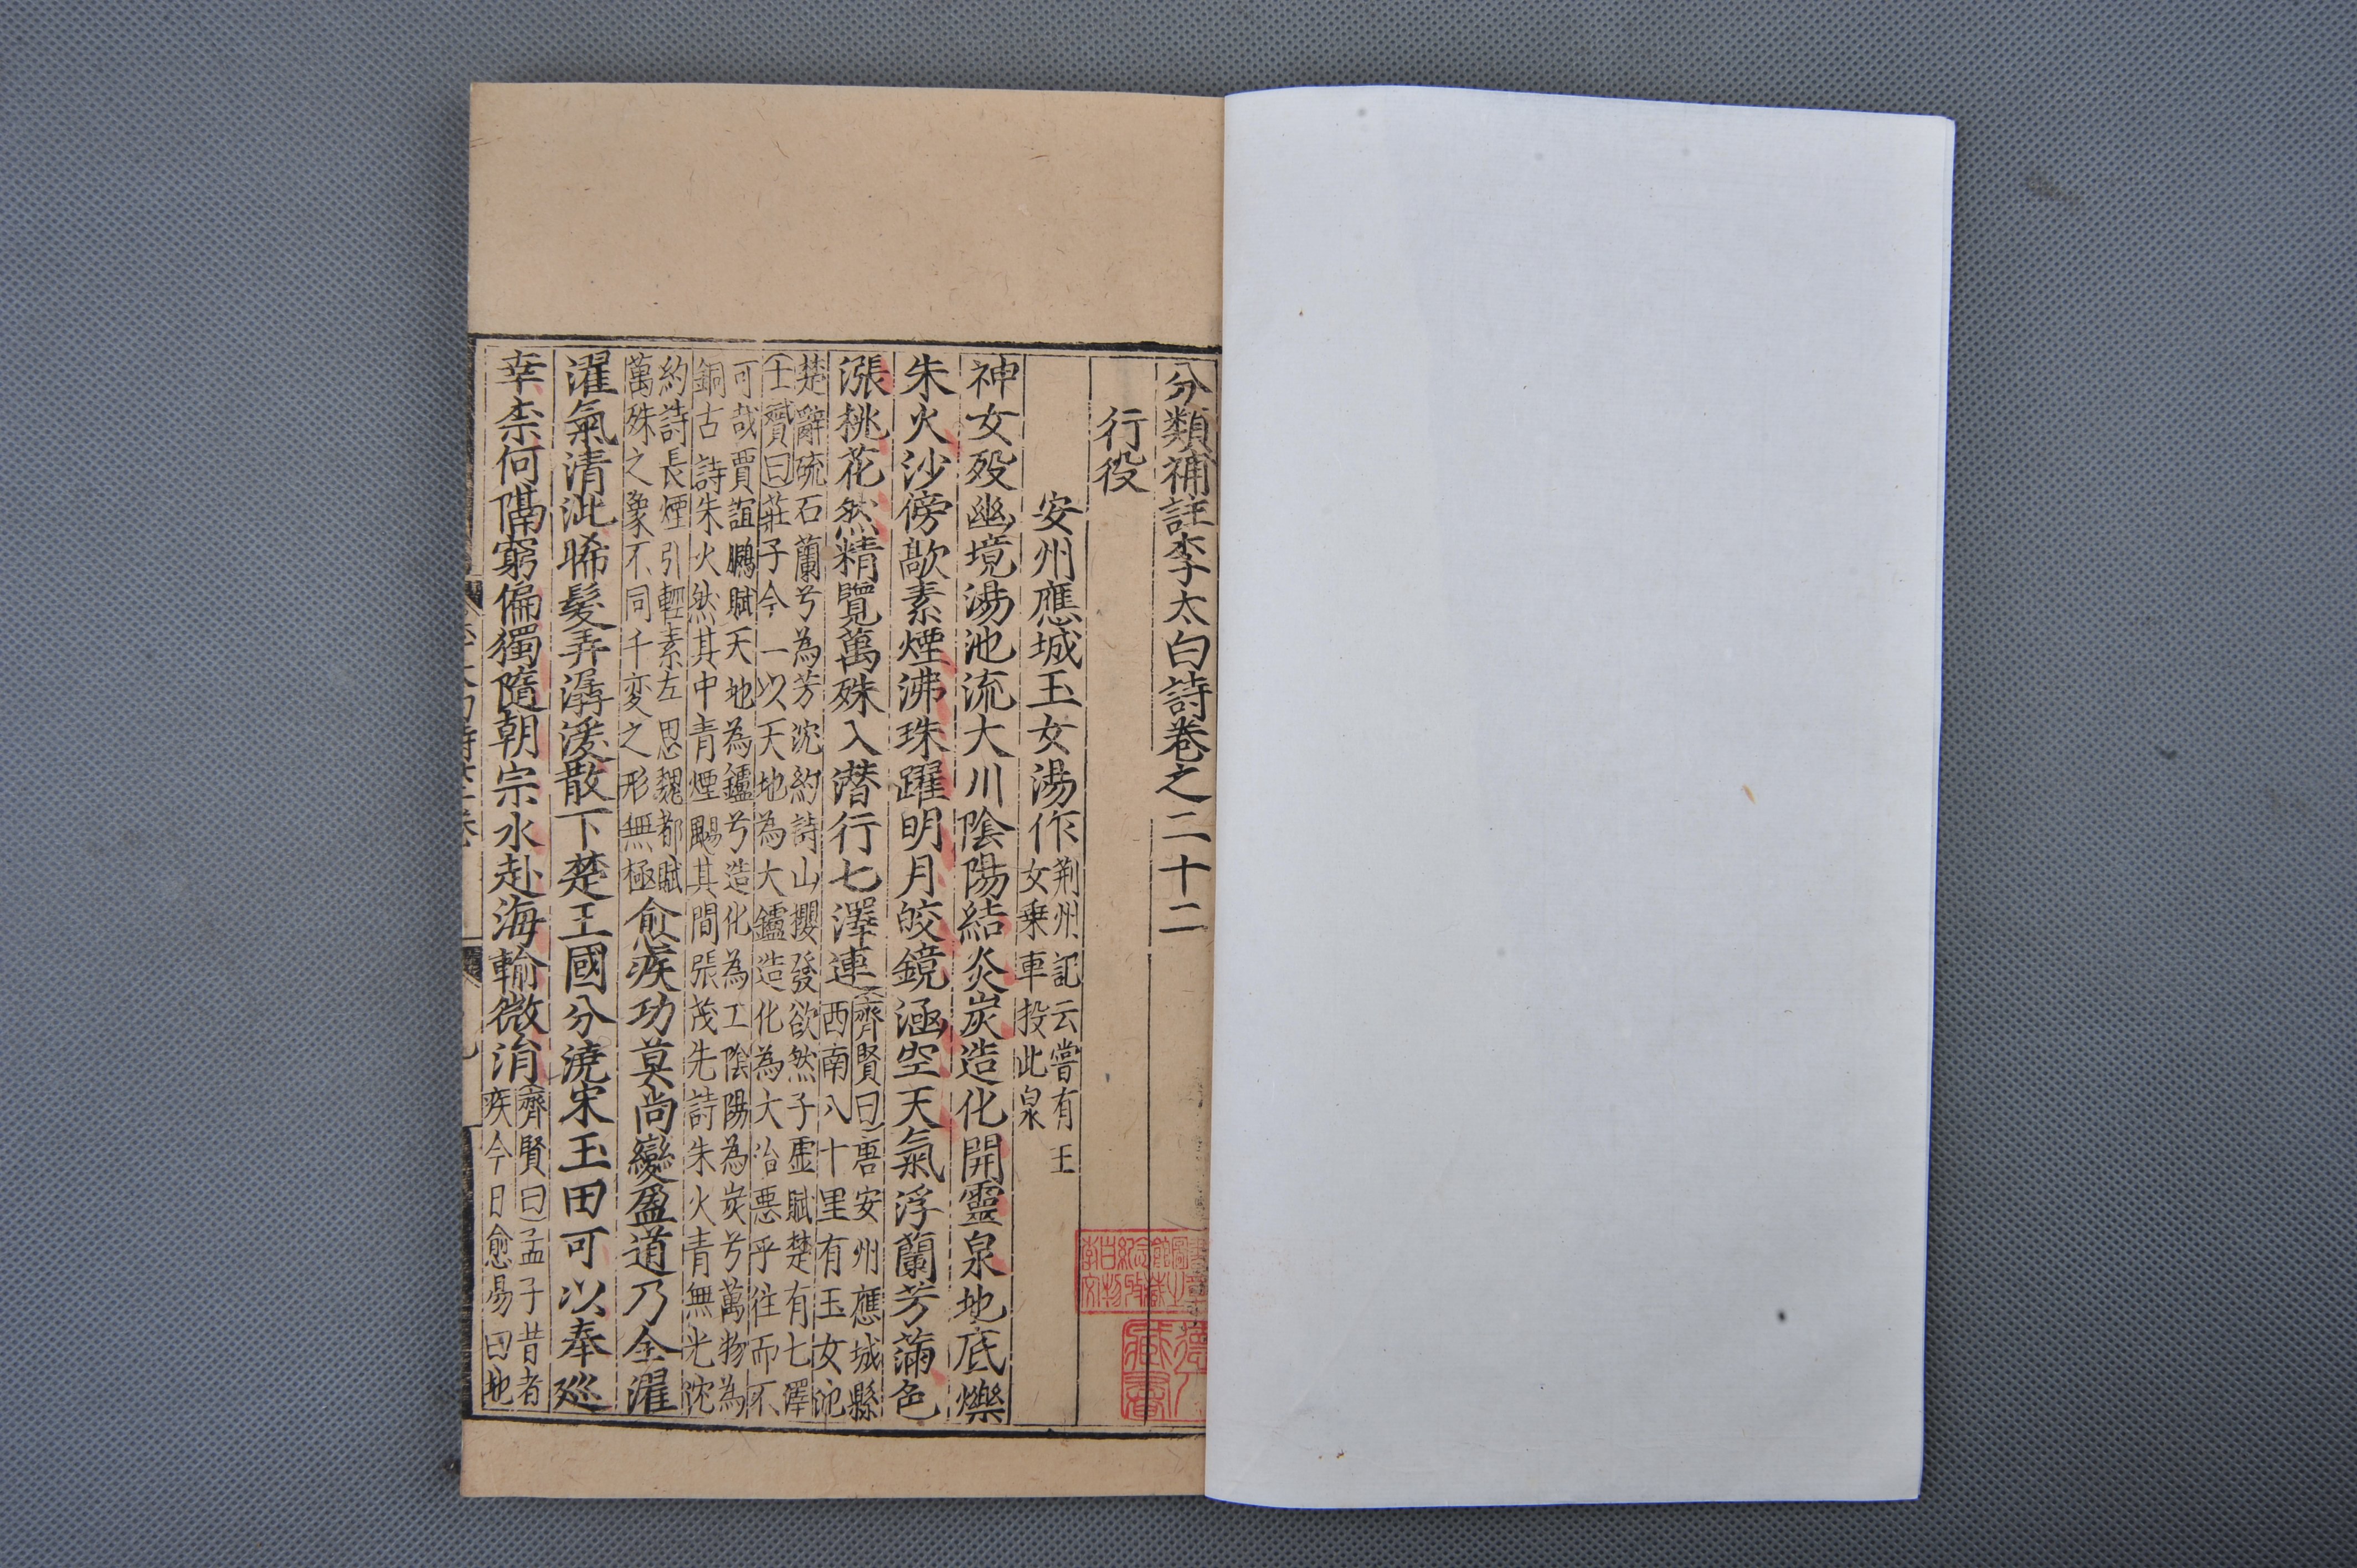 分類補註李太白詩卷之二十二
行役
安州應城玉女湯作
荆州記云嘗有玉
女乘車投此泉
神女殁幽境湯池流大川陰陽結炎炭造化開靈泉地底爍
朱火沙傍歊素煙沸珠躍明月皎鏡涵空天氣浮蘭芳滿色
漲桃花然精覽萬殊入潛行七澤連
齊賢曰唐安州應城縣
西南八十里有玉女池
楚辭硫石蘭兮為芳沈約詩山攖發欲然子虛賦楚有七澤
士贇曰莊子今一以天地為大鑪造化為大冶惡乎往而不
可哉賈誼鵩賦天地為鑪兮造化為工陰陽為炭兮萬物為
銅古詩朱火然其中青煙颺其間張茂先詩朱火青無光沈
約詩長煙引輕素左思魏都賦
萬殊之象不同千変之形無極
愈疾功莫尚變盈道乃全濯
濯氣清泚晞髮弄潺湲散下楚王國分澆宋玉田可以奉巡
幸柰何隔窮偏獨隨朝宗水赴海輸微涓
齊賢曰孟子昔者
疾今日愈昜曰地